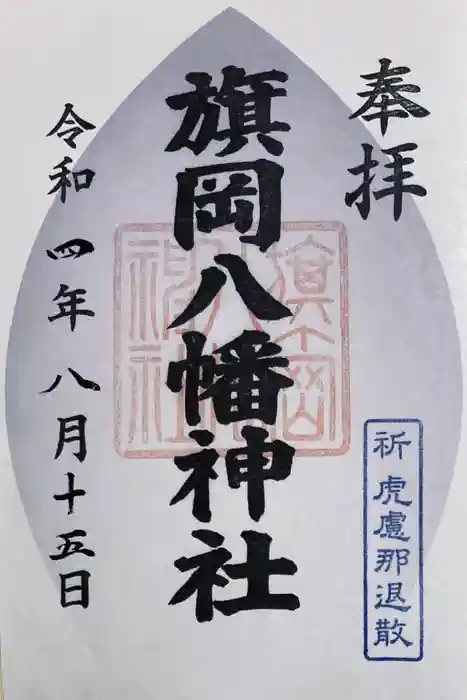 奉拝
祈 虎慮那退散
旗岡八幡神社
令和四年八月十五日